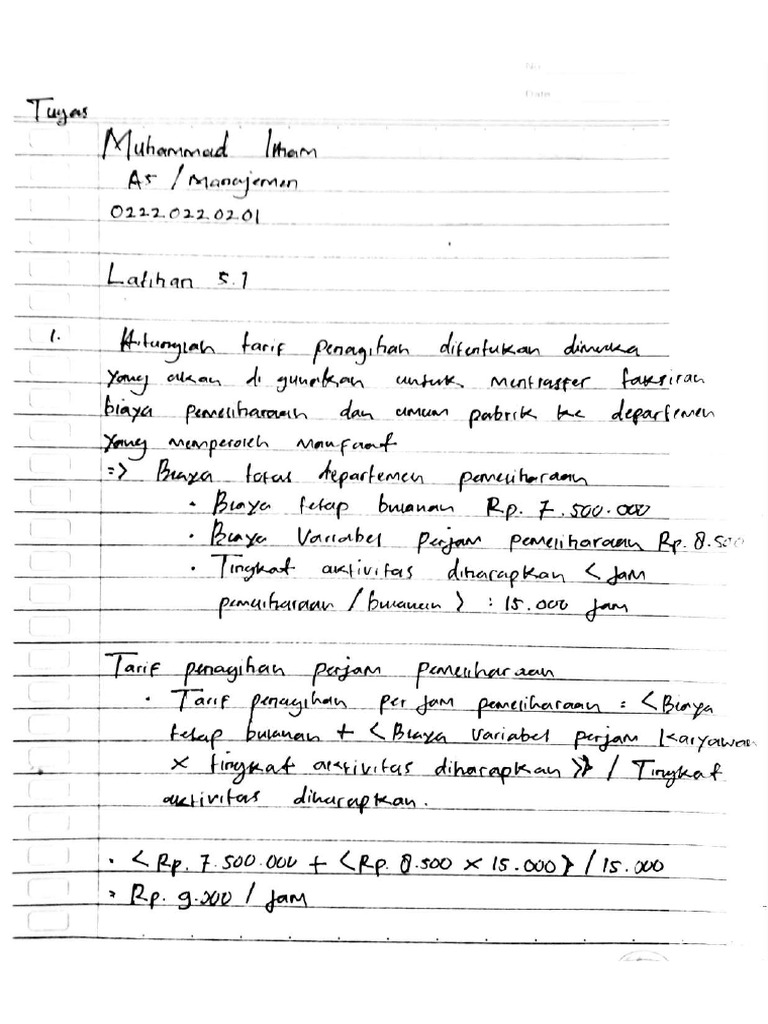 No
Date
Tugas
Muhammad Ilham
A5 / Manajemen
0222.022.02.01
Latihan 5.1
1. Hitunglah tarif penagihan ditentukan dimuka
yang akan di gunakan untuk mentrasfer taksiran
biaya pemeliharaan dan umum pabrik ke departemen
yang memperoleh manfaat
=> Biaya total departemen pemeliharaan
• Biaya tetap bulanan Rp. 7.500.000
• Biaya Variabel perjam pemeliharaan Rp. 8.500
• Tingkat aktivitas diharapkan < Jam
pemeliharaan / bulanan > : 15.000 jam
Tarif penagihan perjam pemeliharaan
• Tarif penagihan per jam pemeliharaan = < Biaya
tetap bulanan + < Biaya variabel perjam karyawan
× tingkat aktivitas diharapkan >> / Tingkat
aktivitas diharapkan.
• < Rp. 7.500.000 + < Rp. 8.500 × 15.000 > / 15.000
= Rp. 9.000 / jam